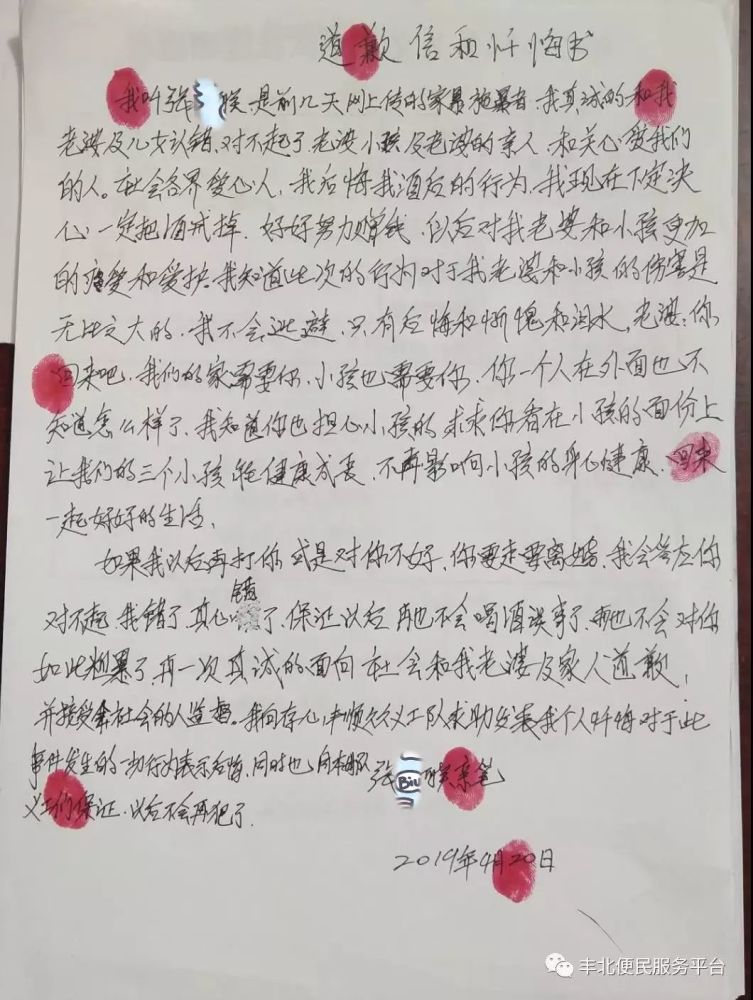 道歉信和忏悔书
我叫张 联是前几天网上传的家暴施暴者.我真诚的和我
老婆及儿女认错.对不起了.老婆小孩及老婆的亲人.和关心爱我们
的人。社会各界爱心人,我后悔我酒后的行为.我现在下定决
心一定把酒戒掉.好好努力赚钱.以后对我老婆和小孩更加
的疼爱和爱护.我知道此次的行为对于我老婆和小孩的伤害是
无比之大的.我不会逃避.只有后悔和惭愧和泪水.老婆:你
回来吧.我们的家需要你.小孩也需要你.你一个人在外面也不
知道怎么样了.我知道你也担心小孩的.求求你看在小孩的面份上
让我们的三个小孩能健康成长.不再影响小孩的身心健康.回来
一起好好的生活.
如果我以后再打你或是对你不好.你要走要离婚.我会答应你
对不起.我错了.真心错了.保证以后再也不会喝酒误事了.再也不会对你
如此粗暴了.再一次真诚的面向社会和我老婆及家人道歉,
并接受社会的人监督。我向存心丰顺众义工队求助发表我个人忏悔对于此
事件发生的一切行为表示后悔.同时也向
义工们保证.以后不会再犯了.
张 Biu 联亲笔
2019年4月20日
丰北便民服务平台